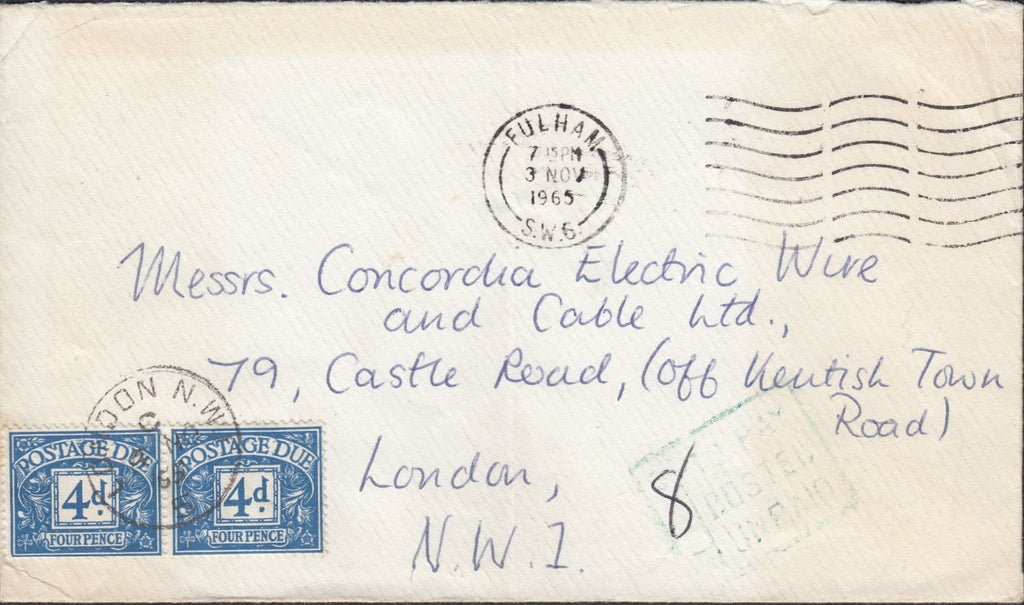 FULHAM
7 15 PM
3 NOV
1965
S.W.6.
Messrs. Concordia Electric Wire
and Cable Ltd.,
79, Castle Road, (off Kentish Town
Road)
London,
N.W.1.
8
POSTED
UNPAID
LONDON N.W.
POSTAGE DUE
4d.
FOUR PENCE
POSTAGE DUE
4d.
FOUR PENCE